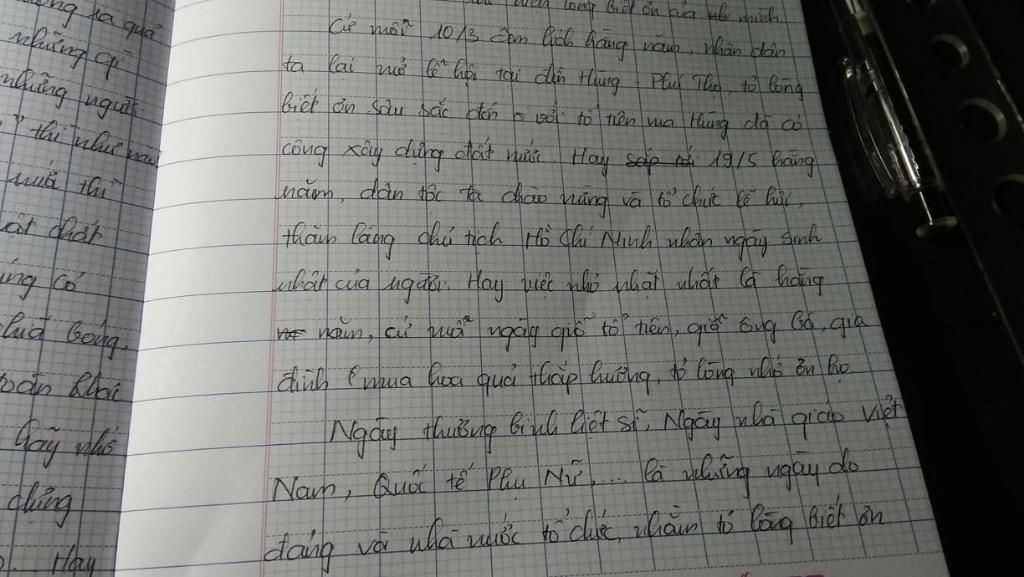 ng ra quả
những gì
những người
thì như nay
muả thì
ật chất
ing có
luả bóng,
toàn khai
Hãy nhớ
dựng
Hay
lòng biết ơn của mình
Cứ mỗi 10/3 âm lịch hằng năm, nhân dân
ta lại mở lễ hội tại đền Hùng - Phú Thọ, tỏ lòng
biết ơn sâu sắc đến với tổ tiên vua Hùng đã có
công xây dựng đất nước Hay 19/5 hằng
năm, dân tộc ta chào mừng và tổ chức lễ hội,
thăm lăng chủ tịch Hồ Chí Minh nhân ngày sinh
nhật của người. Hay việc nhỏ nhặt nhất là hằng
năm, cứ mỗi ngày giỗ tổ tiên, giỗ ông bà, gia
đình mua hoa quả thắp hương, tỏ lòng nhớ ơn họ
Ngày thương binh liệt sĩ, Ngày nhà giáo Việt
Nam, Quốc tế Phụ Nữ,... là những ngày do
đảng và nhà nước tổ chức, nhằm tỏ lòng biết ơn